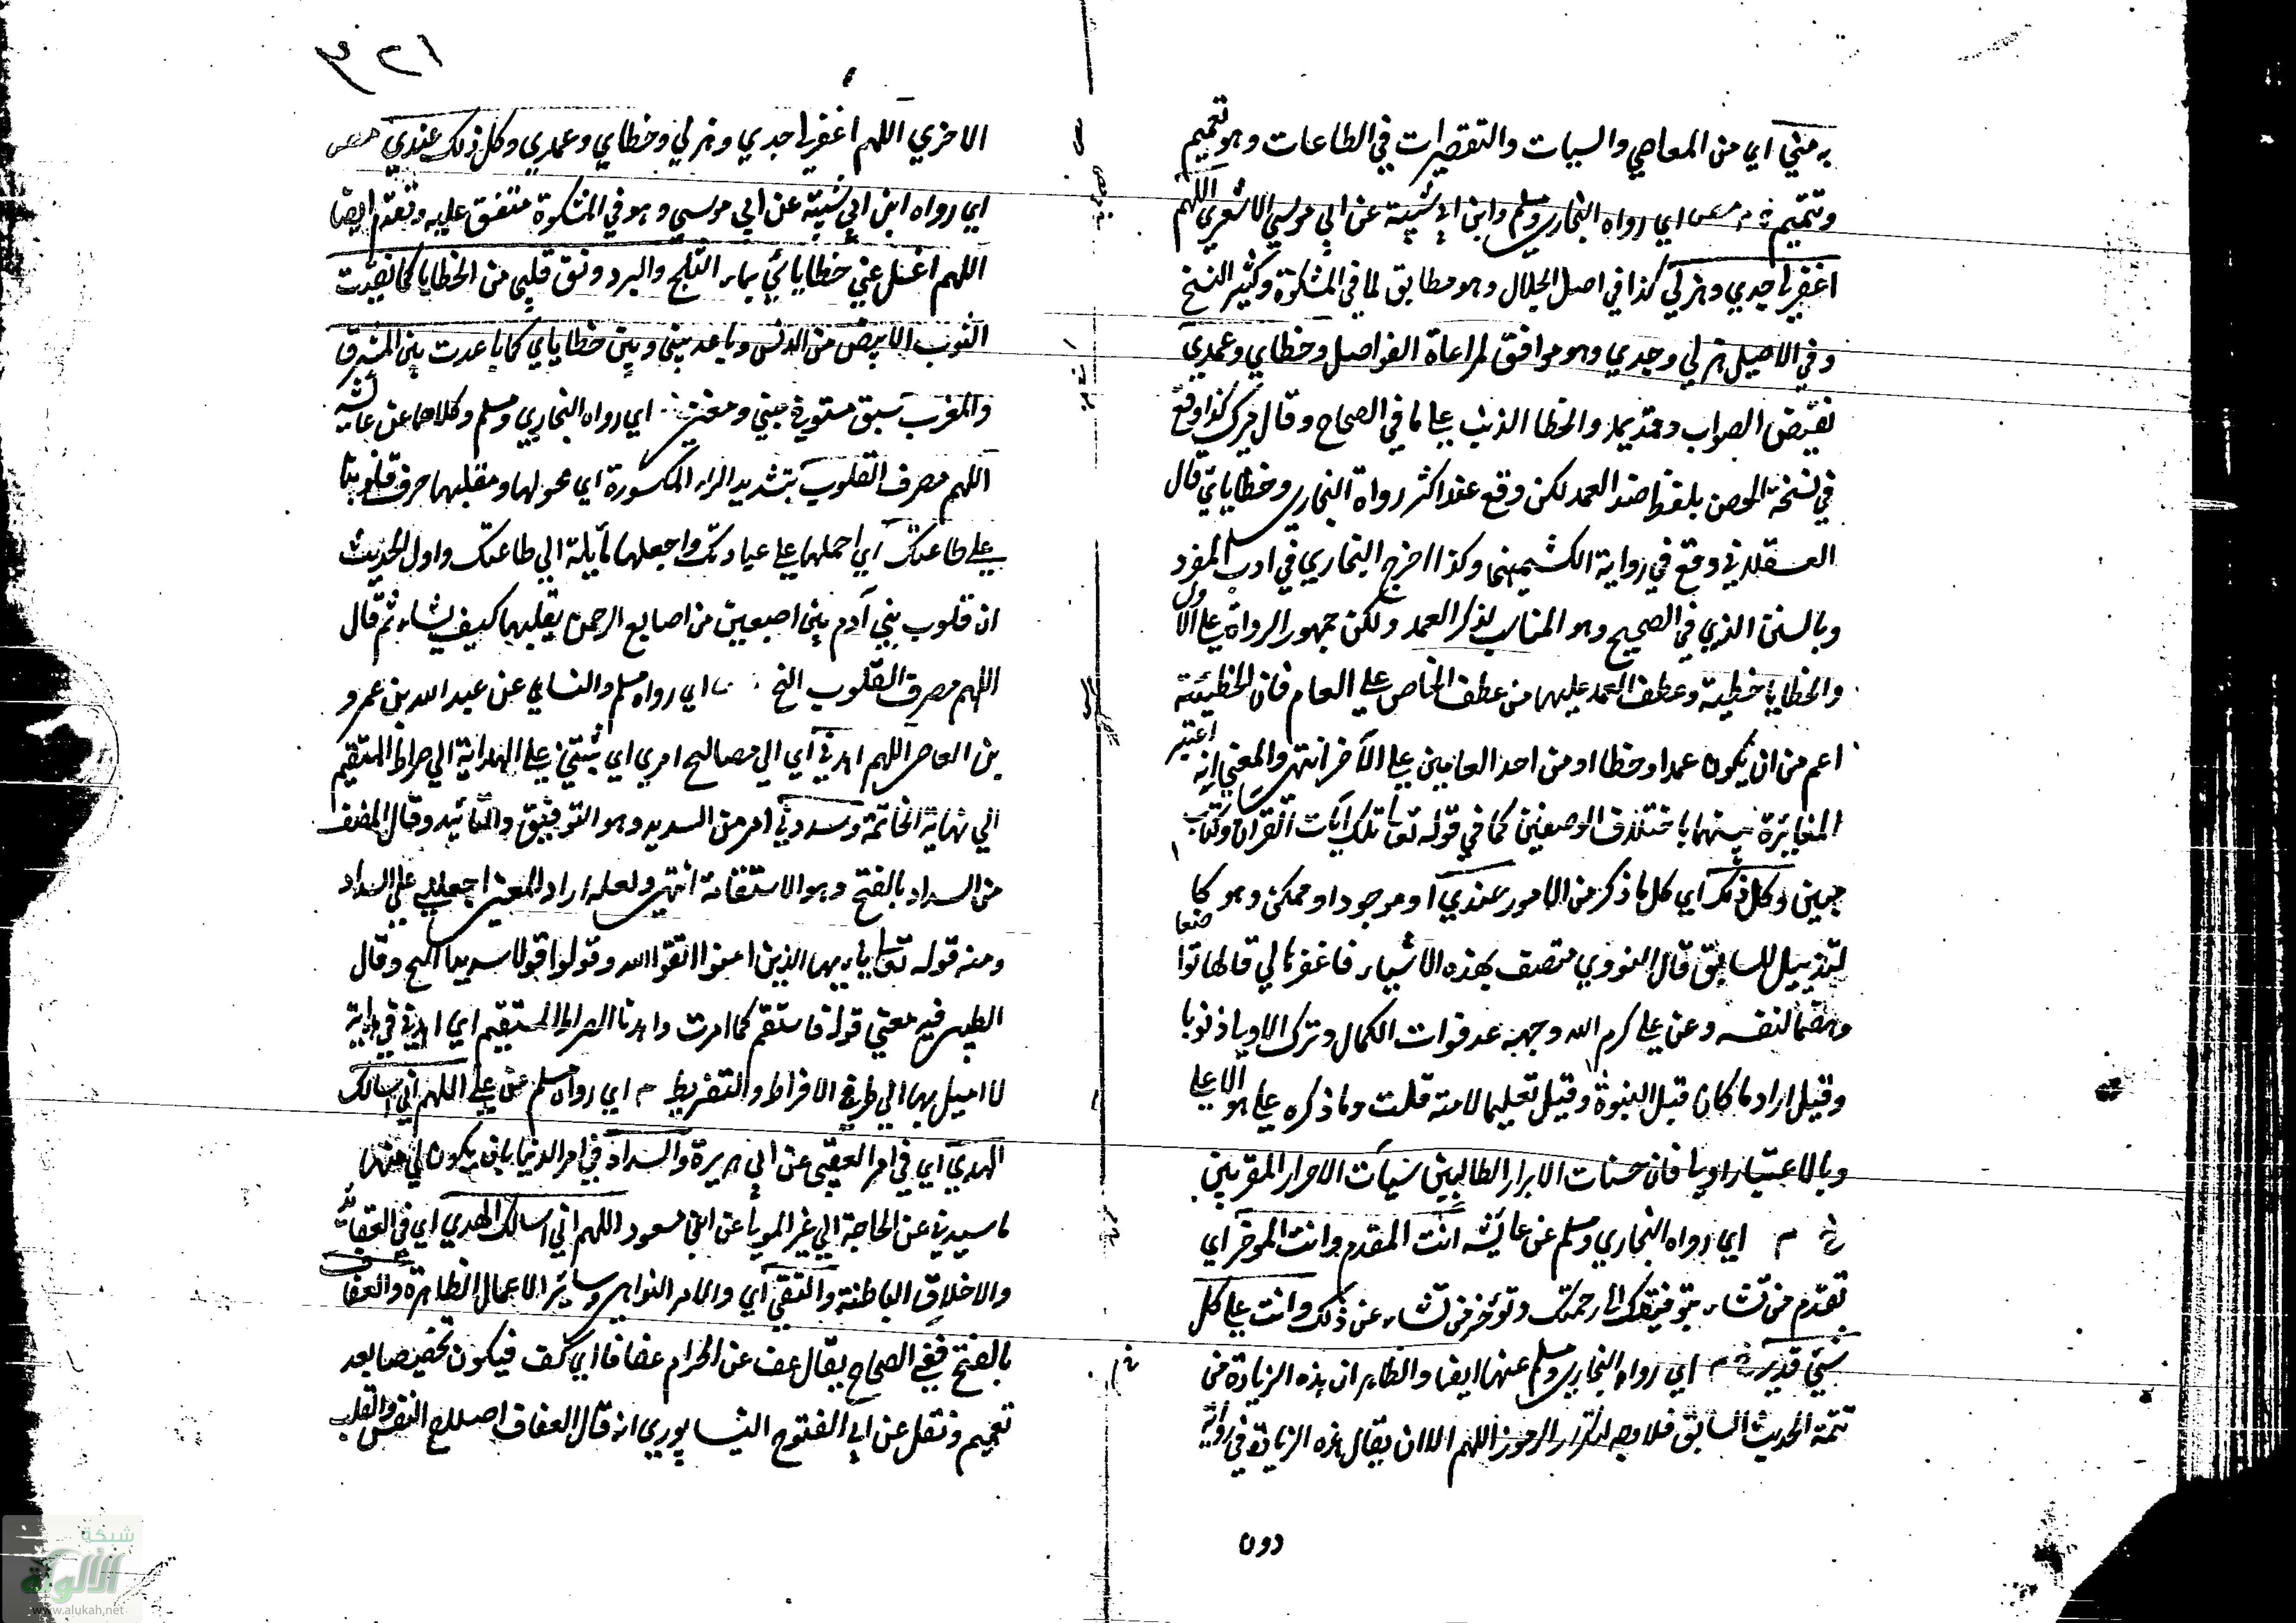 به مني اي من المعاصي والسيات والتقصيرات في الطاعات وهو تعميم
وتتميم خ م مص اي رواه البخاري ومسلم وابن ابي شيبة عن ابي موسي الاشعري اللهم
اغفر لي جدي وهزلي كذا في اصل الجلال وهو مطابق لما في المشكوة وكثير النسخ
وفي الاصيل هزلي وجدي وهو موافق لمراعاة الفواصل وخطاي وعمدي
نقيض الصواب وقد يمد والخطا الذنب علي ما في الصحاح وقال ميرك كذا وقع
في نسخة الحصن بلفظ ضد العمد لكن وقع عند اكثر رواة البخاري وخطاياي قال
العسقلاني وقع في رواية الكشميهني وكذا اخرج البخاري في ادب المفرد
وبالسند الذي في الصحيح وهو المناسب لذكر العمد ولكن جمهور الرواة علي الاول
والخطايا خطيئة وعطف العمد عليها من عطف الخاص علي العام فان الخطيئة
اعم من ان يكون عمدا وخطا او من احد العامين علي الآخر انتهي والمعني انه اعتبر
المغايرة بينهما باختلاف الوصفين كما في قوله تعا تلك آيات القرآن وكتاب
مبين وكل ذلك اي كل ما ذكر من الامور عندي او موجود او ممكن وهو كا
لتذييل للسابق قال النووي متصف بهذه الاشياء فاغفرها لي قالها تواضعا
وهضما لنفسه وعن علي كرم الله وجهه عد فوات الكمال وترك الاولي ذنوبا
وقيل اراد ما كان قبل النبوة وقيل تعليما لامته قلت وما ذكره علي هو الاعلي
وبالاعتبار اولي فان حسنات الابرار الطالبين سيآت الاحرار المقربين
خ م اي رواه البخاري ومسلم عن عائشه انت المقدم وانت الموخر اي
تقدم من تشاء بتوفيقك الي رحمتك وتؤخر من تشاء عن ذلك وانت علي كل
شيئ قدير خ م اي رواه البخاري ومسلم عنها ايضا والظاهر ان هذه الزيادة من
تتمة الحديث السابق فلا وجه لتكرار الرموز اللهم الا ان يقال هذه الزيادة في رواية
دون
٣٢١
الاخري اللهم اغفر لي جدي وهزلي وخطاي وعمدي وكل ذلك عندي مص
اي رواه ابن ابي شيبة عن ابي موسي وهو في المشكوة متفق عليه وتقدم ايضا
اللهم اغسل عني خطاياي بماء الثلج والبرد ونق قلبي من الخطايا كما نقيت
الثوب الابيض من الدنس وباعد بيني وبين خطاياي كما باعدت بين المشرق
والمغرب سبق مستوفي مبني ومعني اي رواه البخاري ومسلم وكلاهما عن عائشه
اللهم مصرف القلوب بتشديد الراء المكسورة اي محولها ومقلبها صرف قلوبنا
علي طاعتك اي احملها علي عبادتك واجعلها مايلة الي طاعتك واول الحديث
ان قلوب بني آدم بين اصبعين من اصابع الرحمن يقلبها كيف يشاء ثم قال
اللهم مصرف القلوب الخ اي رواه مسلم والنسايي عن عبد الله بن عمرو
بن العاص اللهم اهدني اي الي مصالح امري اي ثبتني علي الهداية الي صراط المستقيم
الي نهاية الخاتمة وسددني امر من السديد وهو التوفيق والتائيد وقال المصنف
من السداد بالفتح وهو الاستقامة انتهي ولعله اراد المعني اجعلني علي السداد
ومنه قوله تعا ياءيها الذين امنوا اتقوا الله وقولوا قولا سديدا الخ وقال
الطيبي فيه معني قوله فاستقم كما امرت واهدنا الصراط المستقيم اي اهدني هداية
لا اميل بها الي طرفي الافراط والتفريط م اي رواه مسلم عن علي اللهم اني اسالك
الهدي اي في امر العقبي عن ابي هريرة والسداد في امر الدنيا بان يكون لي منها
ما سيدني عن الحاجة الي غير المولي عن ابن مسعود اللهم اني اسالك الهدي اي في العقائد
والاخلاق الباطنة والتقي اي والامر النواهي وسائر الاعمال الظاهرة والعفاف
بالفتح ففي الصحاح يقال عف عن الحرام عفافا اي كف فيكون تخصيصا بعد
تعميم ونقل عن ابي الفتوح النيسابوري انه قال العفاف اصلاح النفس والقلب
شبكة
الألوكة
www.alukah.net